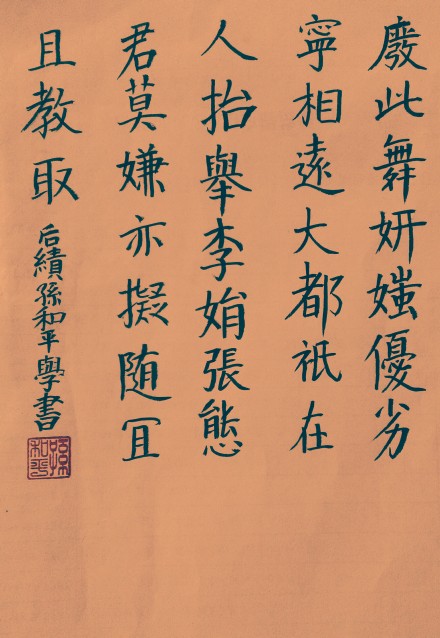 廢此舞妍媸優劣
寧相遠大都祇在
人抬舉李娟張態
君莫嫌亦擬随冝
且教取
后績孫和平學書
孫和平